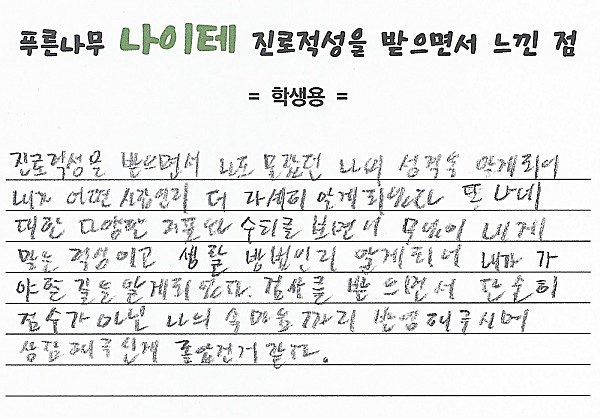 푸른나무 나이테 진로적성을 받으면서 느낀 점
= 학생용 =
진로적성을 받으면서 나도 몰랐던 나의 성격을 알게되어
내가 어떤 사람인지 더 자세히 알게되었다 또 나에
대한 다양한 지표와 수치를 보면서 무엇이 내게
맞는 적성이고 생활 방법인지 알게되어 내가 가
야할 길을 알게되었다. 검사를 받으면서 단순히
점수가 아닌 나의 속마음까지 반영해주시며
상담해주신게 좋았던거 같다.